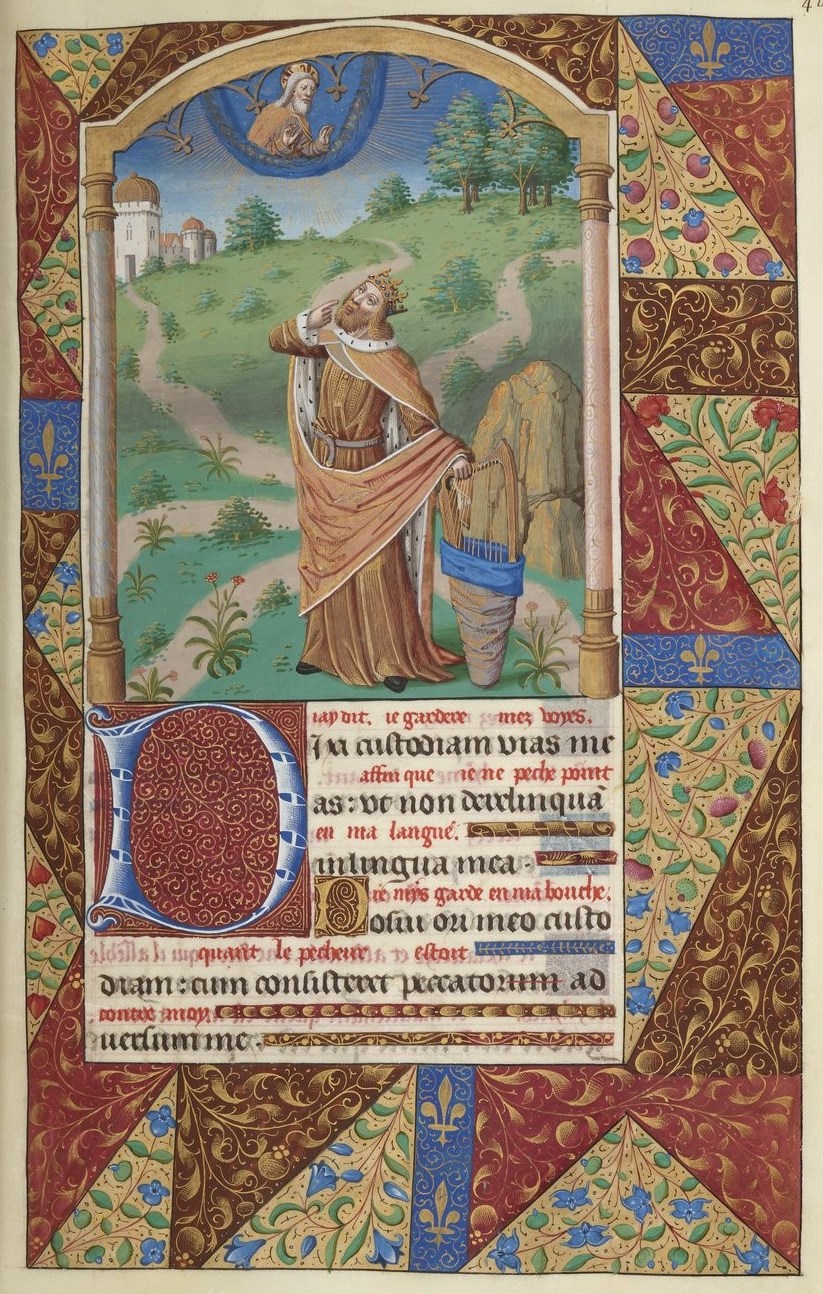 iay dit. ie gardere mez voyes.
Ixi custodiam vias me
affin que ie ne peche point
as: vt non derelinquā
en ma langue.
in lingua mea.
ie mys garde en ma bouche.
Posui ori meo custo
quant le pecheur estoit
diam: cum consisteret peccatorum ad
contre moy.
uersum me.